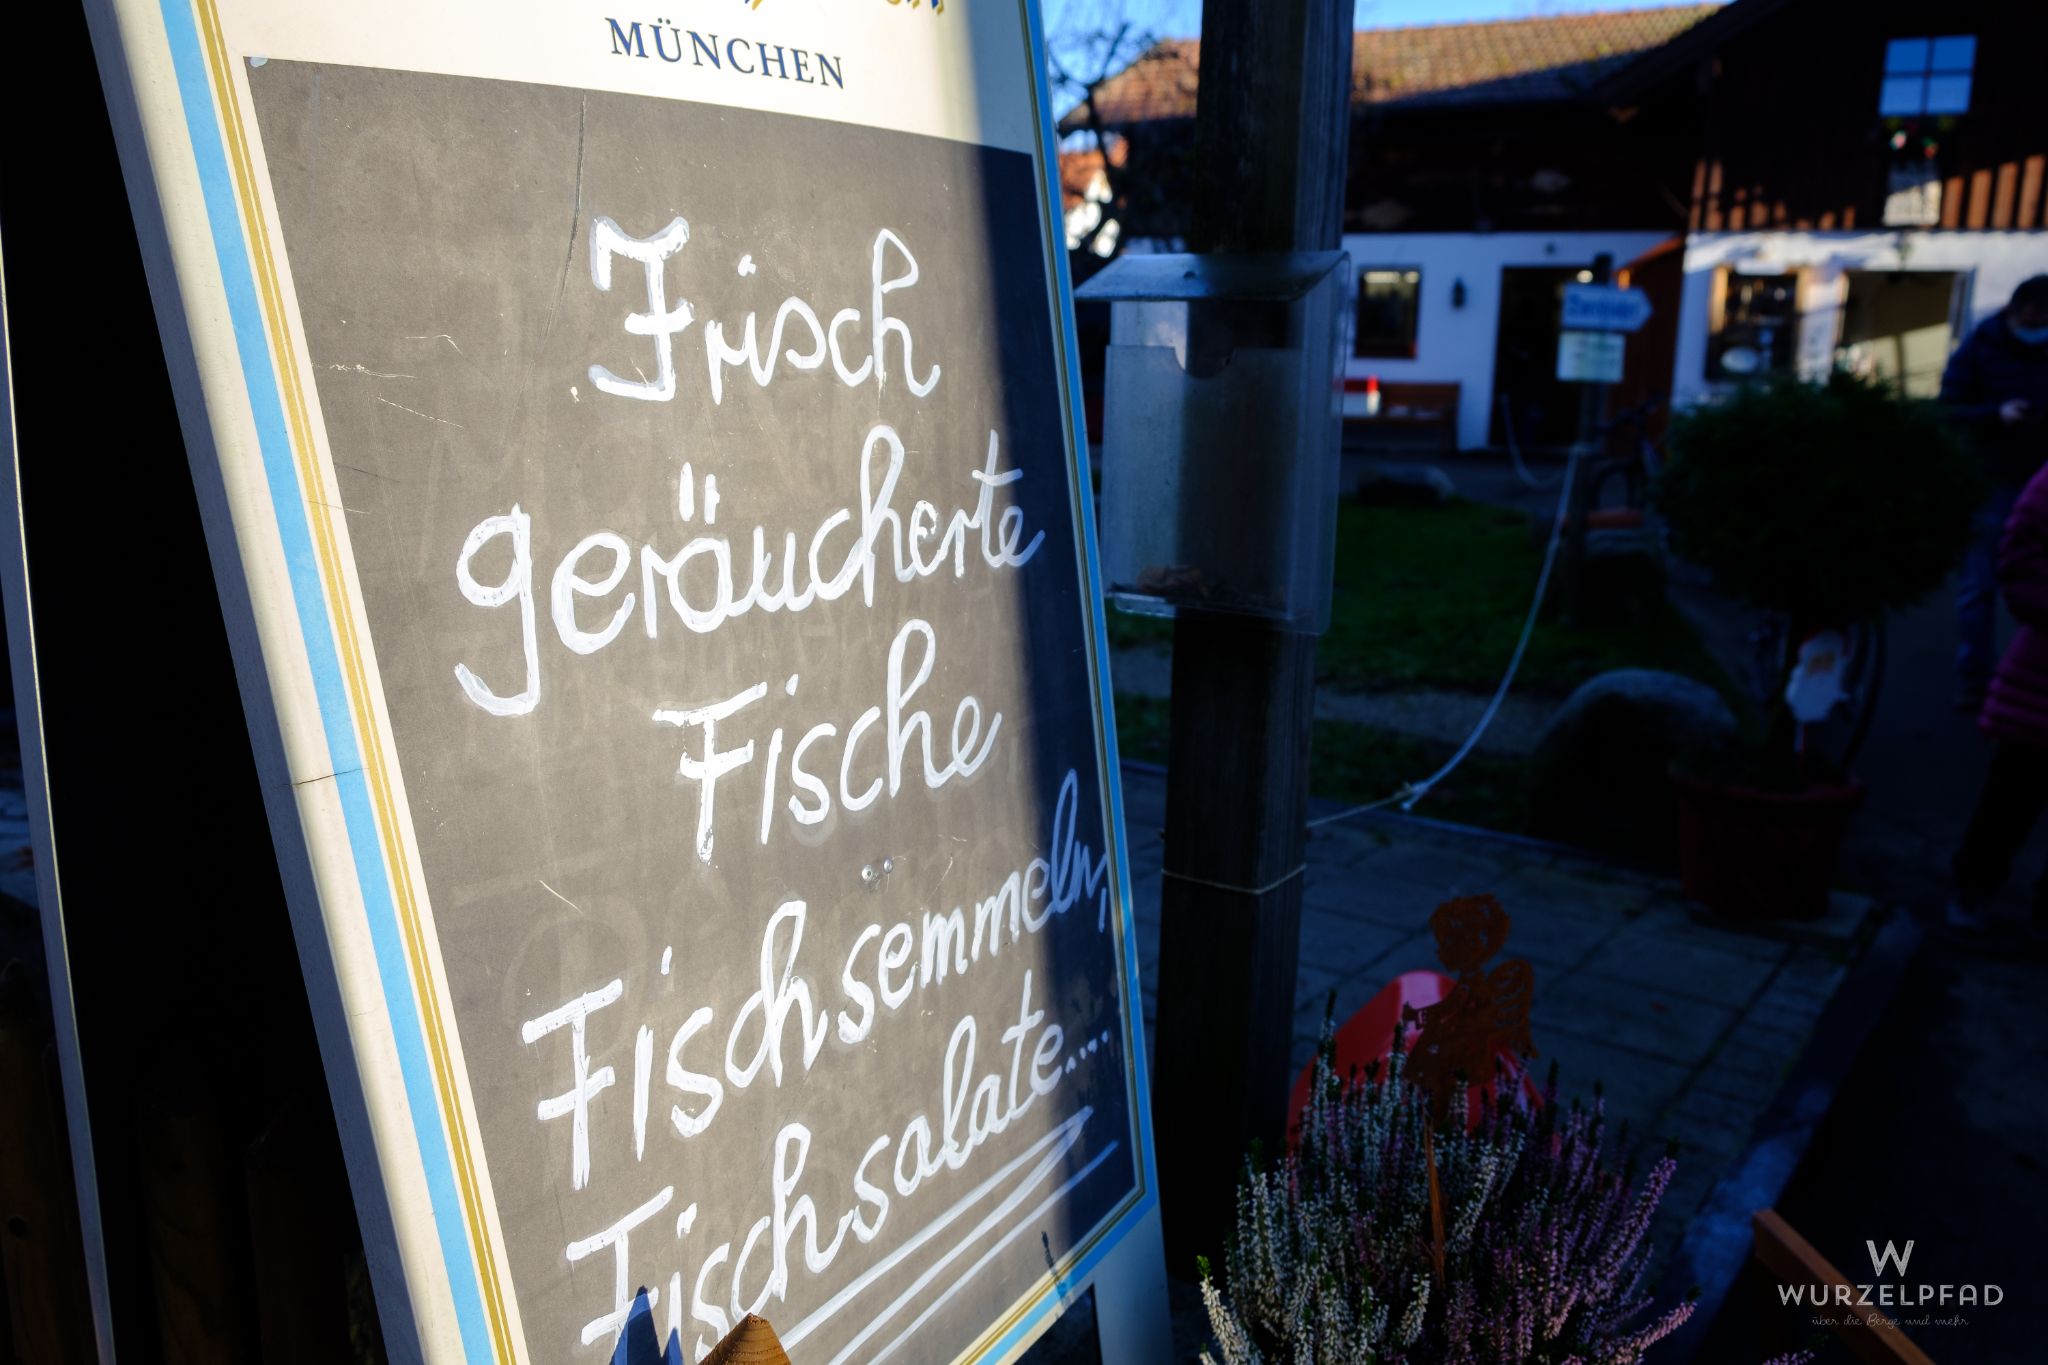 MÜNCHEN
Frisch
geräucherte
Fische
Fischsemmeln,
Fischsalate....
W
WURZELPFAD
über die Berge und mehr